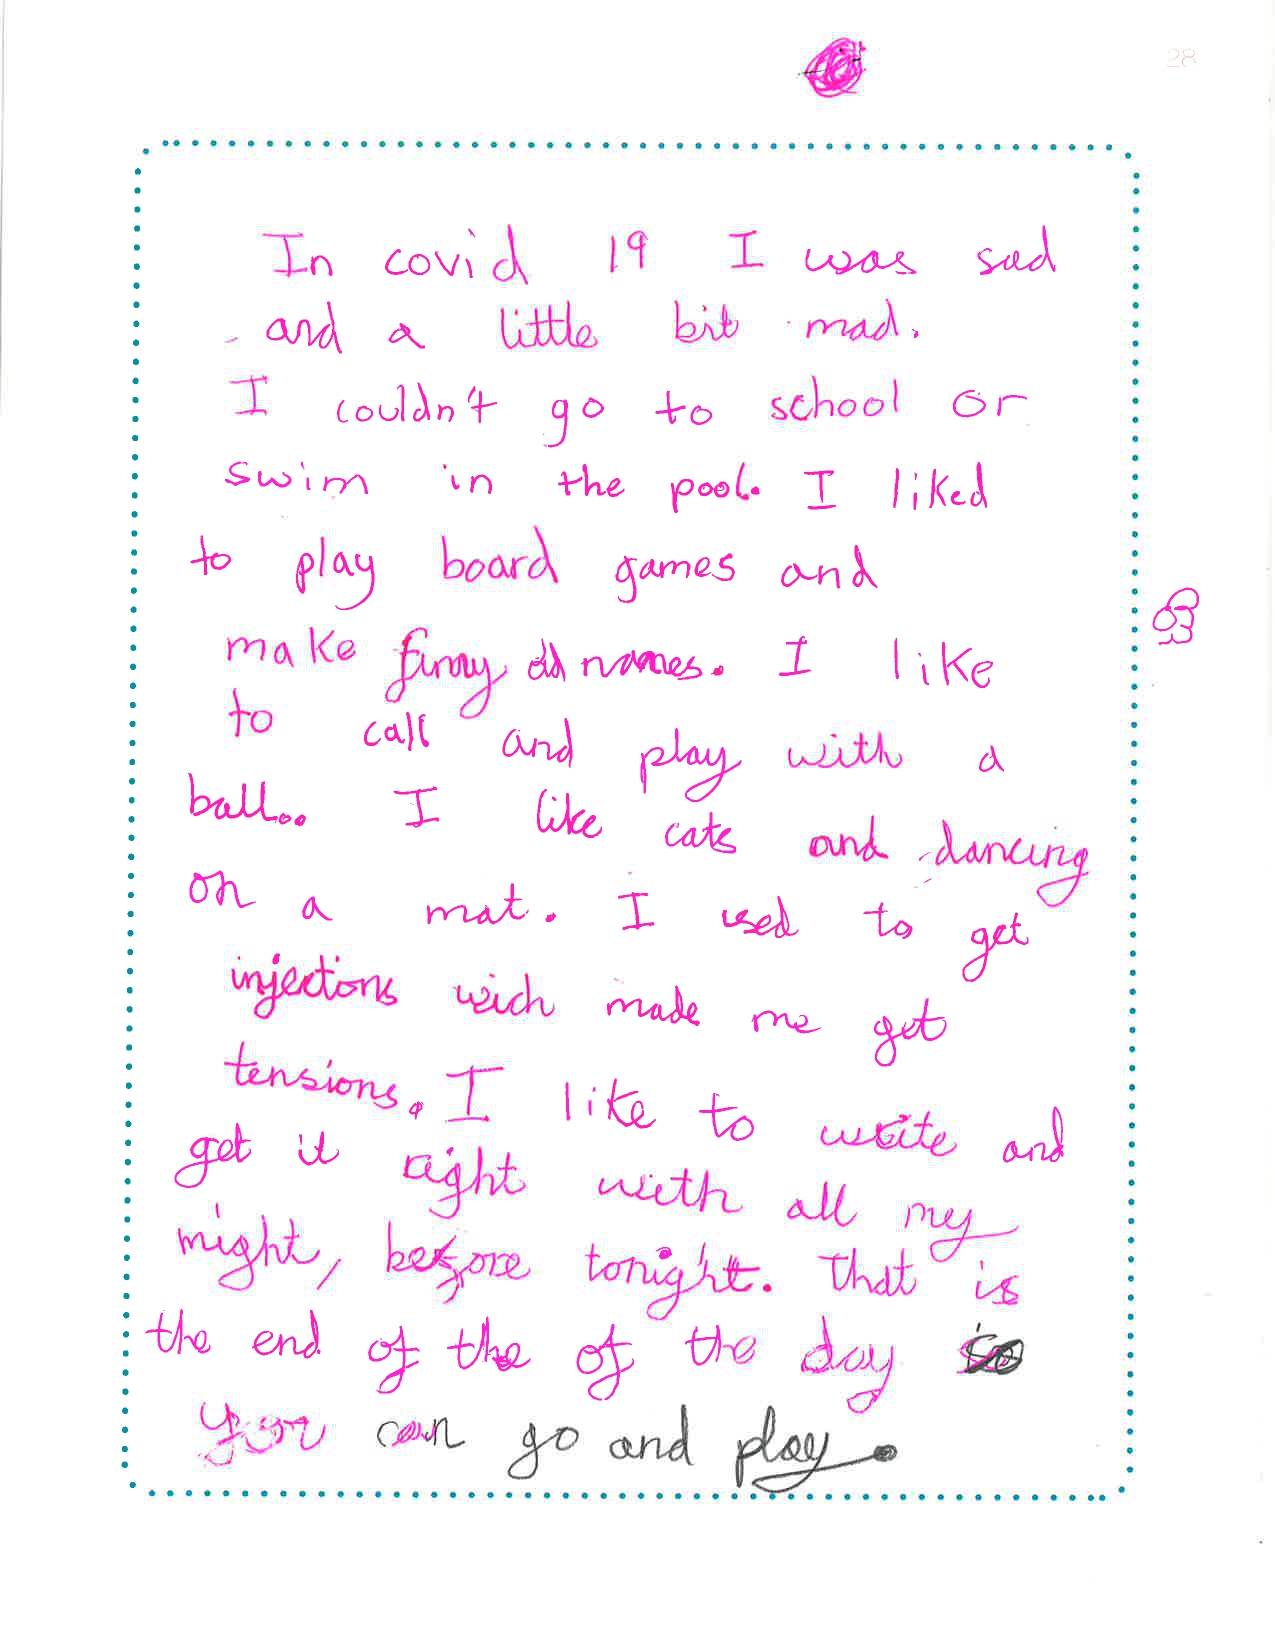 28
In covid 19 I was sad
and a little bit mad.
I couldn't go to school or
swim in the pool. I liked
to play board games and
make funny names. I like
to call and play with a
ball.. I like cats and dancing
on a mat. I used to get
injections wich made me get
tensions. I like to write and
get it right with all my
might, before tonight. That is
the end of the of the day so
you can go and play.